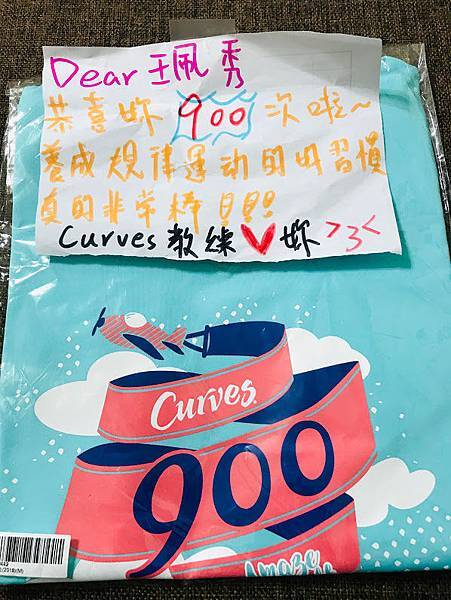 Dear 珮秀
恭喜妳 900 次啦~
養成規律運动的好習慣
真的非常棒!!!
Curves 教練♥妳 >3<
Curves
900